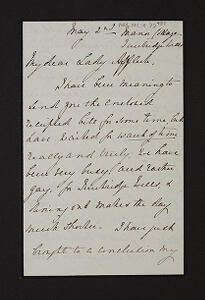 May 2nd Manor Cottage
Tunbridge Wells
My dear Lady
I have been meaning to
send you the enclosed
receipted bill for some time but
have waited for want of time
really and truly. We have
been very busy, and rather
gay, for Tunbridge Wells, &
dining out makes the day
much shorter. I have just
brought to a conclusion my